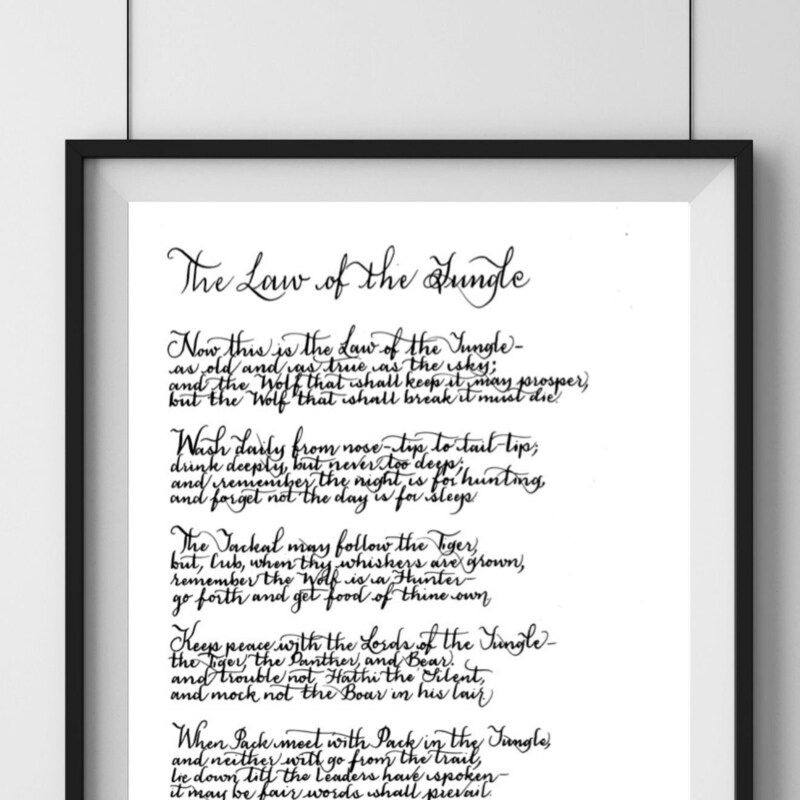 The Law of the Jungle
Now this is the Law of the Jungle-
as old and as true as the sky;
and the Wolf that shall keep it may prosper,
but the Wolf that shall break it must die.
Wash daily from nose-tip to tail-tip;
drink deeply, but never too deep;
and remember the night is for hunting,
and forget not the day is for sleep
The Jackal may follow the Tiger,
but, Cub, when thy whiskers are grown,
remember the Wolf is a Hunter-
go forth and get food of thine own
Keep peace with the Lords of the Jungle-
the Tiger, the Panther, and Bear.
and trouble not Hathi the Silent,
and mock not the Boar in his lair
When Pack meet with Pack in the Jungle,
and neither will go from the trail,
lie down till the Leaders have spoken-
it may be fair words shall prevail.